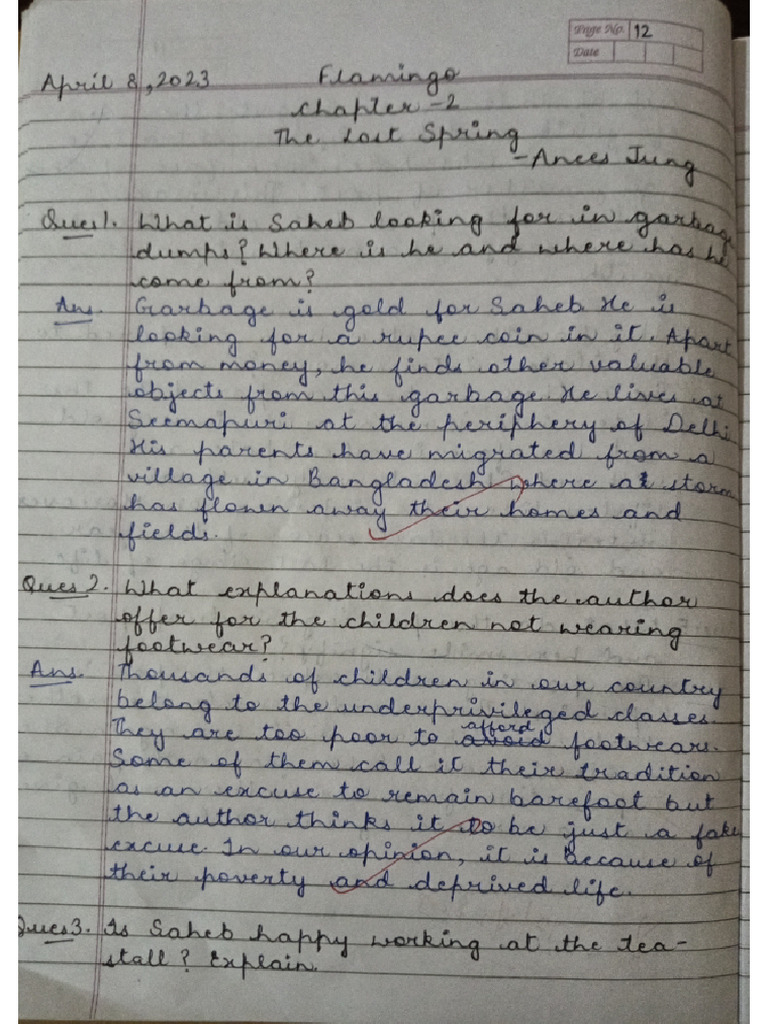 Page No. 12
Date
April 8, 2023 Flamingo
Chapter -2
The Lost Spring
- Anees Jung
Ques1. What is Saheb looking for in garbage
dumps? Where is he and where has he
come from?
Ans. Garbage is gold for Saheb. He is
looking for a rupee coin in it. Apart
from money, he finds other valuable
objects from this garbage. He lives at
Seemapuri at the periphery of Delhi.
His parents have migrated from a
village in Bangladesh where at storm
has flown away their homes and
fields.
Ques 2. What explanations does the author
offer for the children not wearing
footwear?
Ans. Thousands of children in our country
belong to the underprivileged classes.
They are too poor to avoid afford footwears.
Some of them call it their tradition
as an excuse to remain barefoot but
the author thinks it to be just a fake
excuse. In our opinion, it is because of
their poverty and deprived life.
Ques3. Is Saheb happy working at the tea-
stall? Explain.